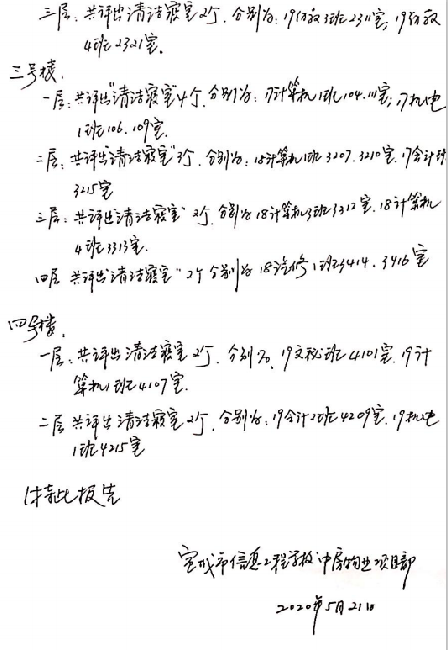 三层:共评出清洁寝室2个,分别为:19幼教3班2311室;19幼教
4班2321室.
三号楼.
一层:共评出"清洁寝室"4个,分别为:17计算机1班104.111室;17机电
1班106.109室.
二层:共评出"清洁寝室"3个,分别为:18计算机1班3207.3210室.17会计
3215室
三层:共评出"清洁寝室"2个,分别为18计算机3班3312室.18计算机
4班3313室.
四层 共评出"清洁寝室"2个分别为 18汽修1班3414.3416室
四号楼.
一层:共评出清洁寝室2个,分别为,19文秘班4101室.19计
算机1班4107室.
二层 共评出清洁寝室2个,分别为:19会计2班4209室.19机电
1班4215室
特此报告
宣城市信息工程学校中房物业项目部
2020年5月21日